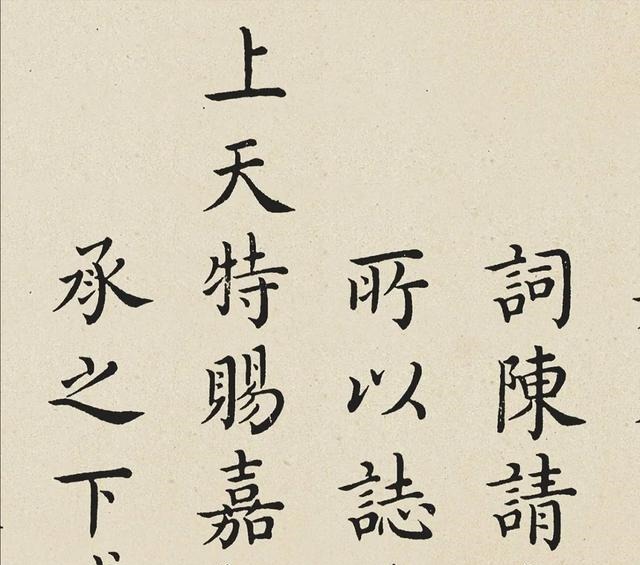 詞陳請
所以誌
上天特賜嘉
承之下